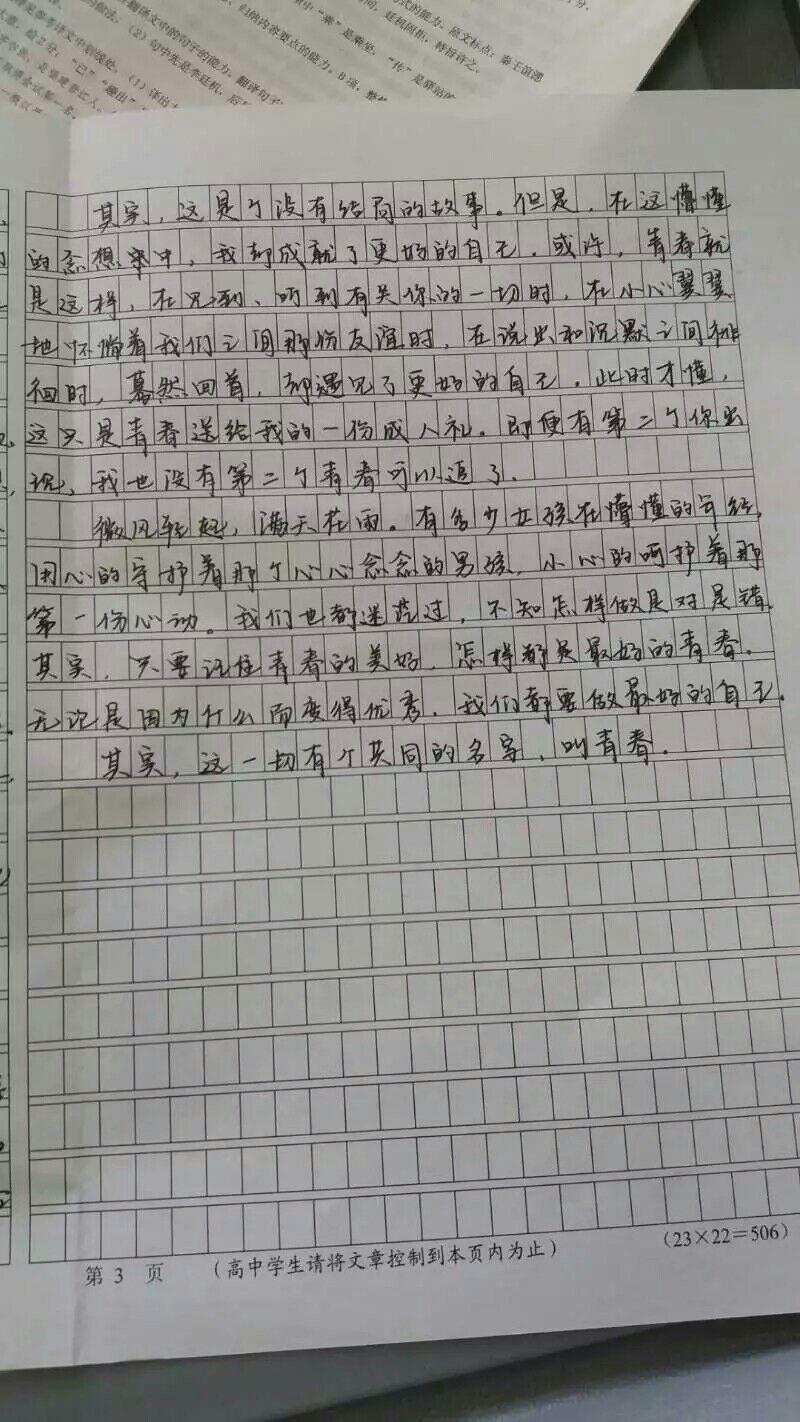 其实，这是个没有结局的故事。但是，在这懵懂
的念想中，我却成就了更好的自己。或许，青春就
是这样，在见到、听到有关你的一切时，在小心翼翼
地怀揣着我们之间那份友谊时，在说出和沉默之间徘
徊时，蓦然回首，却遇见了更好的自己。此时才懂，
这只是青春送给我的一份成人礼。即便有第二个你出
现，我也没有第二个青春可以追了。
微风轻起，满天花雨。有多少女孩在懵懂的年纪，
用心的守护着那个心心念念的男孩，小心的呵护着那
第一份心动。我们也都迷茫过，不知怎样做是对是错，
其实，只要记住青春的美好，怎样都是最好的青春。
无论是因为什么而变得优秀，我们都要做最好的自己。
其实，这一切有个共同的名字，叫青春。
第 3 页 （高中学生请将文章控制到本页内为止） (23×22=506)